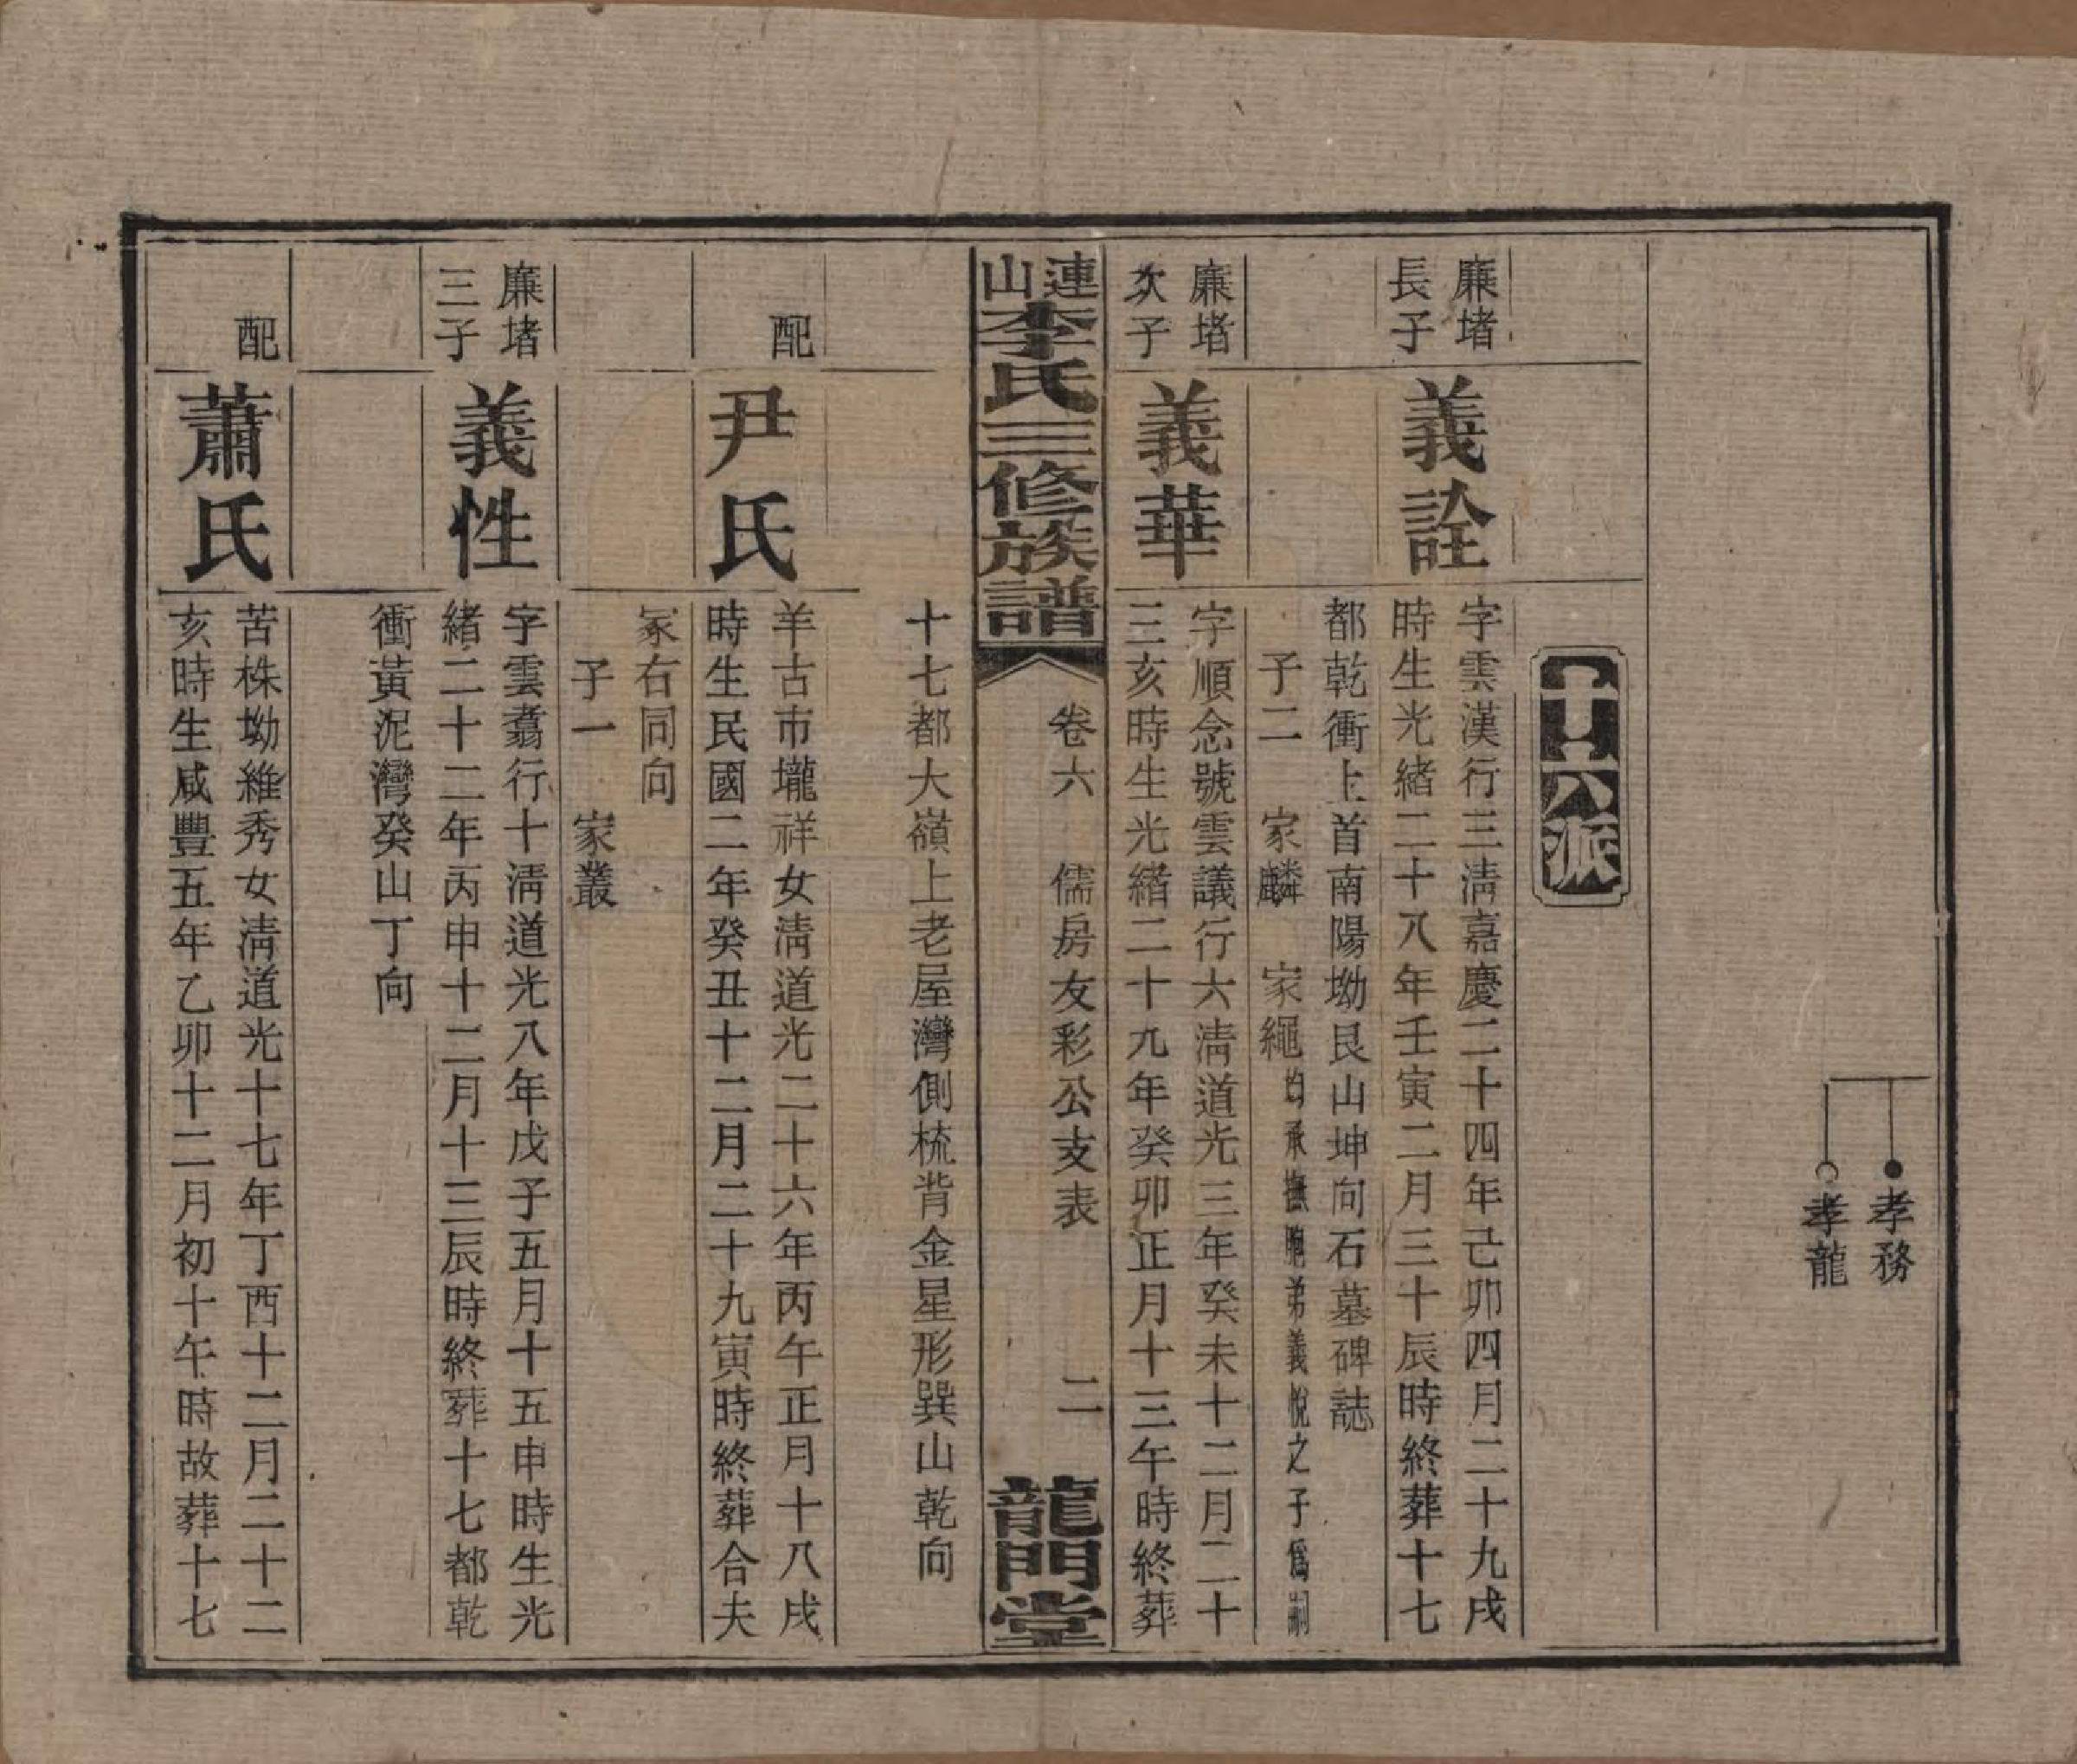 孝務
孝龍
十六派
廉堵
長子
義詮
字雲漢行三清嘉慶二十四年己卯四月二十九戌
時生光緒二十八年壬寅二月三十辰時終葬十七
都乾衝上首南陽坳艮山坤向石墓碑誌
子二 家麟 家繩 均承撫胞弟義悅之子爲嗣
廉堵
次子
義華
字順念號雲議行六清道光三年癸未十二月二十
三亥時生光緒二十九年癸卯正月十三午時終葬
連山李氏三修族譜
卷六 儒房友彩公支表 二
龍門堂
十七都大嶺上老屋灣側梳背金星形巽山乾向
配
尹氏
羊古市壠祥女清道光二十六年丙午正月十八戌
時生民國二年癸丑十二月二十九寅時終葬合夫
冢右同向
子一 家叢
廉堵
三子
義性
字雲翥行十清道光八年戊子五月十五申時生光
緒二十二年丙申十二月十三辰時終葬十七都乾
衝黃泥灣癸山丁向
配
蕭氏
苦株坳維秀女清道光十七年丁酉十二月二十二
亥時生咸豐五年乙卯十二月初十午時故葬十七